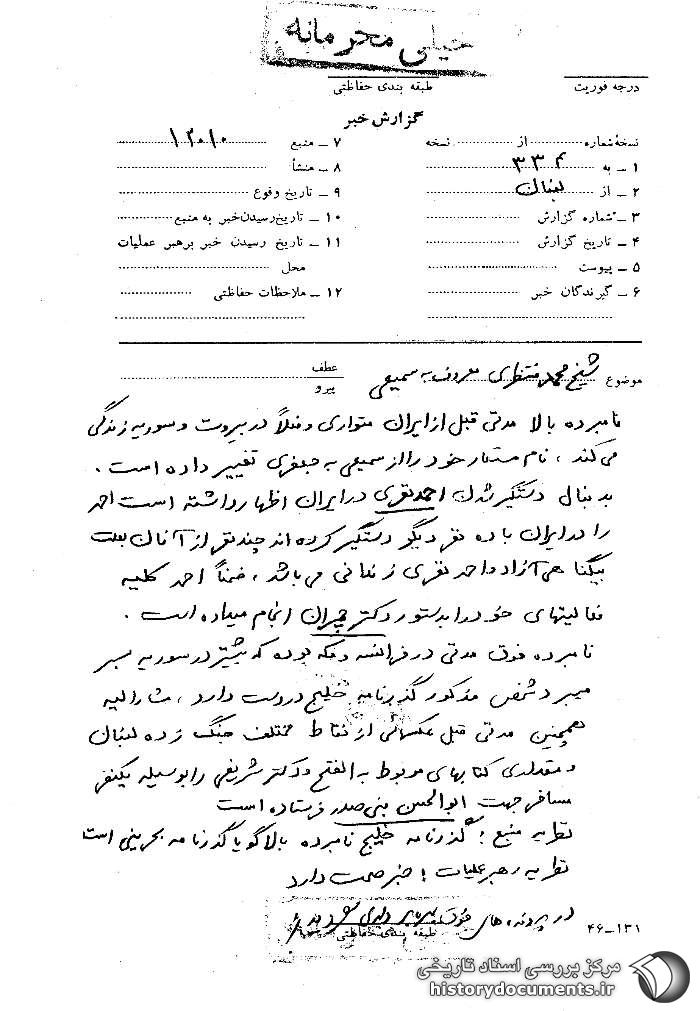 خیلی محرمانه
درجه فوریت
طبقه بندی حفاظتی
گزارش خبر
نسخهٔ شماره از نسخه
۱ ـ به ۳۳۲
۲ ـ از لبنان
۳ ـ شماره گزارش
۴ ـ تاریخ گزارش
۵ ـ پیوست
۶ ـ گیرندگان خبر
۷ ـ منبع ۱۲۰۱۰
۸ ـ منشأ
۹ ـ تاریخ وقوع
۱۰ ـ تاریخ رسیدن خبر به منبع
۱۱ ـ تاریخ رسیدن خبر برهبر عملیات
محل
۱۲ ـ ملاحظات حفاظتی
موضوع شیخ محمد منتظری معروف به سمیعی
عطف
پیرو
نامبرده بالا مدتی قبل از ایران متواری و فعلاً در بیروت و سوریه زندگی
می کند، نام مستعار خود را از سمیعی به جعفری تغییر داده است.
بدنبال دستگیر شدن احمد نفری در ایران اظهار داشته است احمد
را در ایران با ده نفر دیگر دستگیر کرده اند چند نفر از آنان بعلت
بیگناهی آزاد و احمد نفری زندانی می باشد، ضمناً احمد کلیه
فعالیتهای خود را بدستور دکتر چمران انجام میداده است.
نامبرده فوق مدتی در فرانسه و مکه بوده که بیشتر در سوریه بسر
میبرد شخص مذکور گذرنامه خلیج در دست دارد، مشارالیه
همچنین مدتی قبل عکسهائی از نقاط مختلف جنگ زده لبنان
و مقداری کتابهای مربوط به الفتح و دکتر شریعتی را بوسیله یکنفر
مسافر جهت ابوالحسن بنی صدر فرستاده است
نظریه منبع: گذرنامه خلیج نامبرده بالا گویا گذرنامه بحرینی است
نظریه رهبر عملیات: خبر صحت دارد
در پرونده های فوق
طبقه بندی حفاظتی
۴۶-۱۳۱
مرکز بررسی اسناد تاریخی
historydocuments.ir